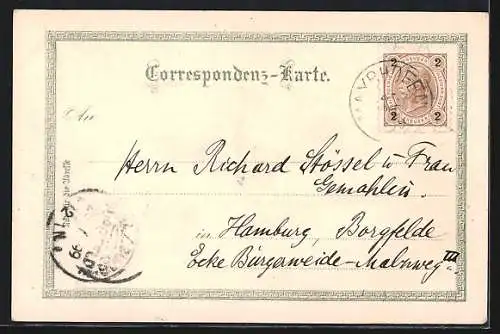 Correspondenz-Karte.
2 2
2 2
MAYRHOFEN
An
Herrn Richard Stössel u Frau
Gemahlin
in Hamburg, Borgfelde
Ecke Bürgerweide-Malzweg III
99